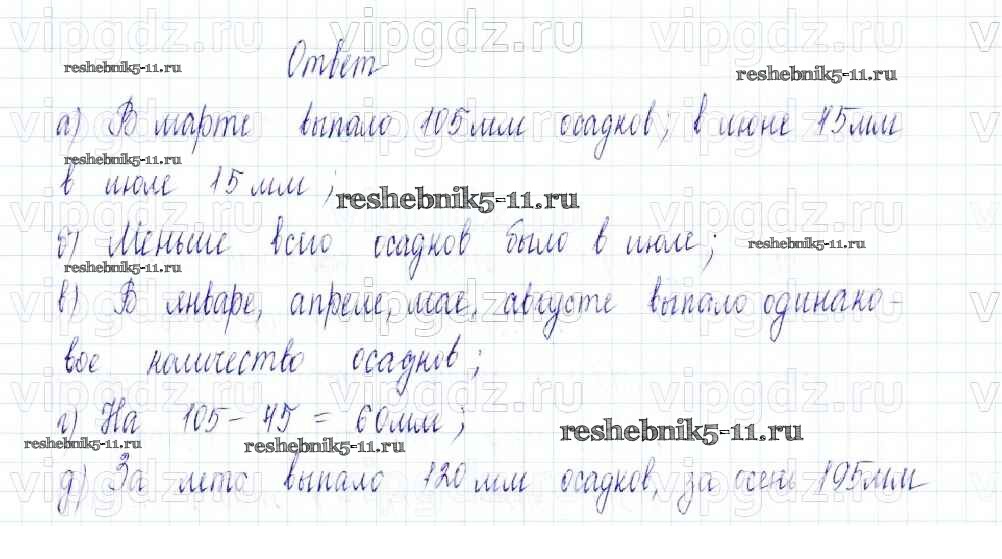 vipgdz.ru vipgdz.ru vipgdz.ru vipgdz.ru vipgdz.ru
Ответ
reshebnik5-11.ru
reshebnik5-11.ru
а) В марте выпало 105 мм осадков; в июне 45мм
reshebnik5-11.ru
в июле 15 мм;
reshebnik5-11.ru
б) Меньше всего осадков было в июле;
reshebnik5-11.ru
reshebnik5-11.ru
в) В январе, апреле, мае, августе выпало одинако-
вое количество осадков;
г) На 105 - 45 = 60мм;
reshebnik5-11.ru
reshebnik5-11.ru
reshebnik5-11.ru
д) За лето выпало 120 мм осадков, за осень 195мм